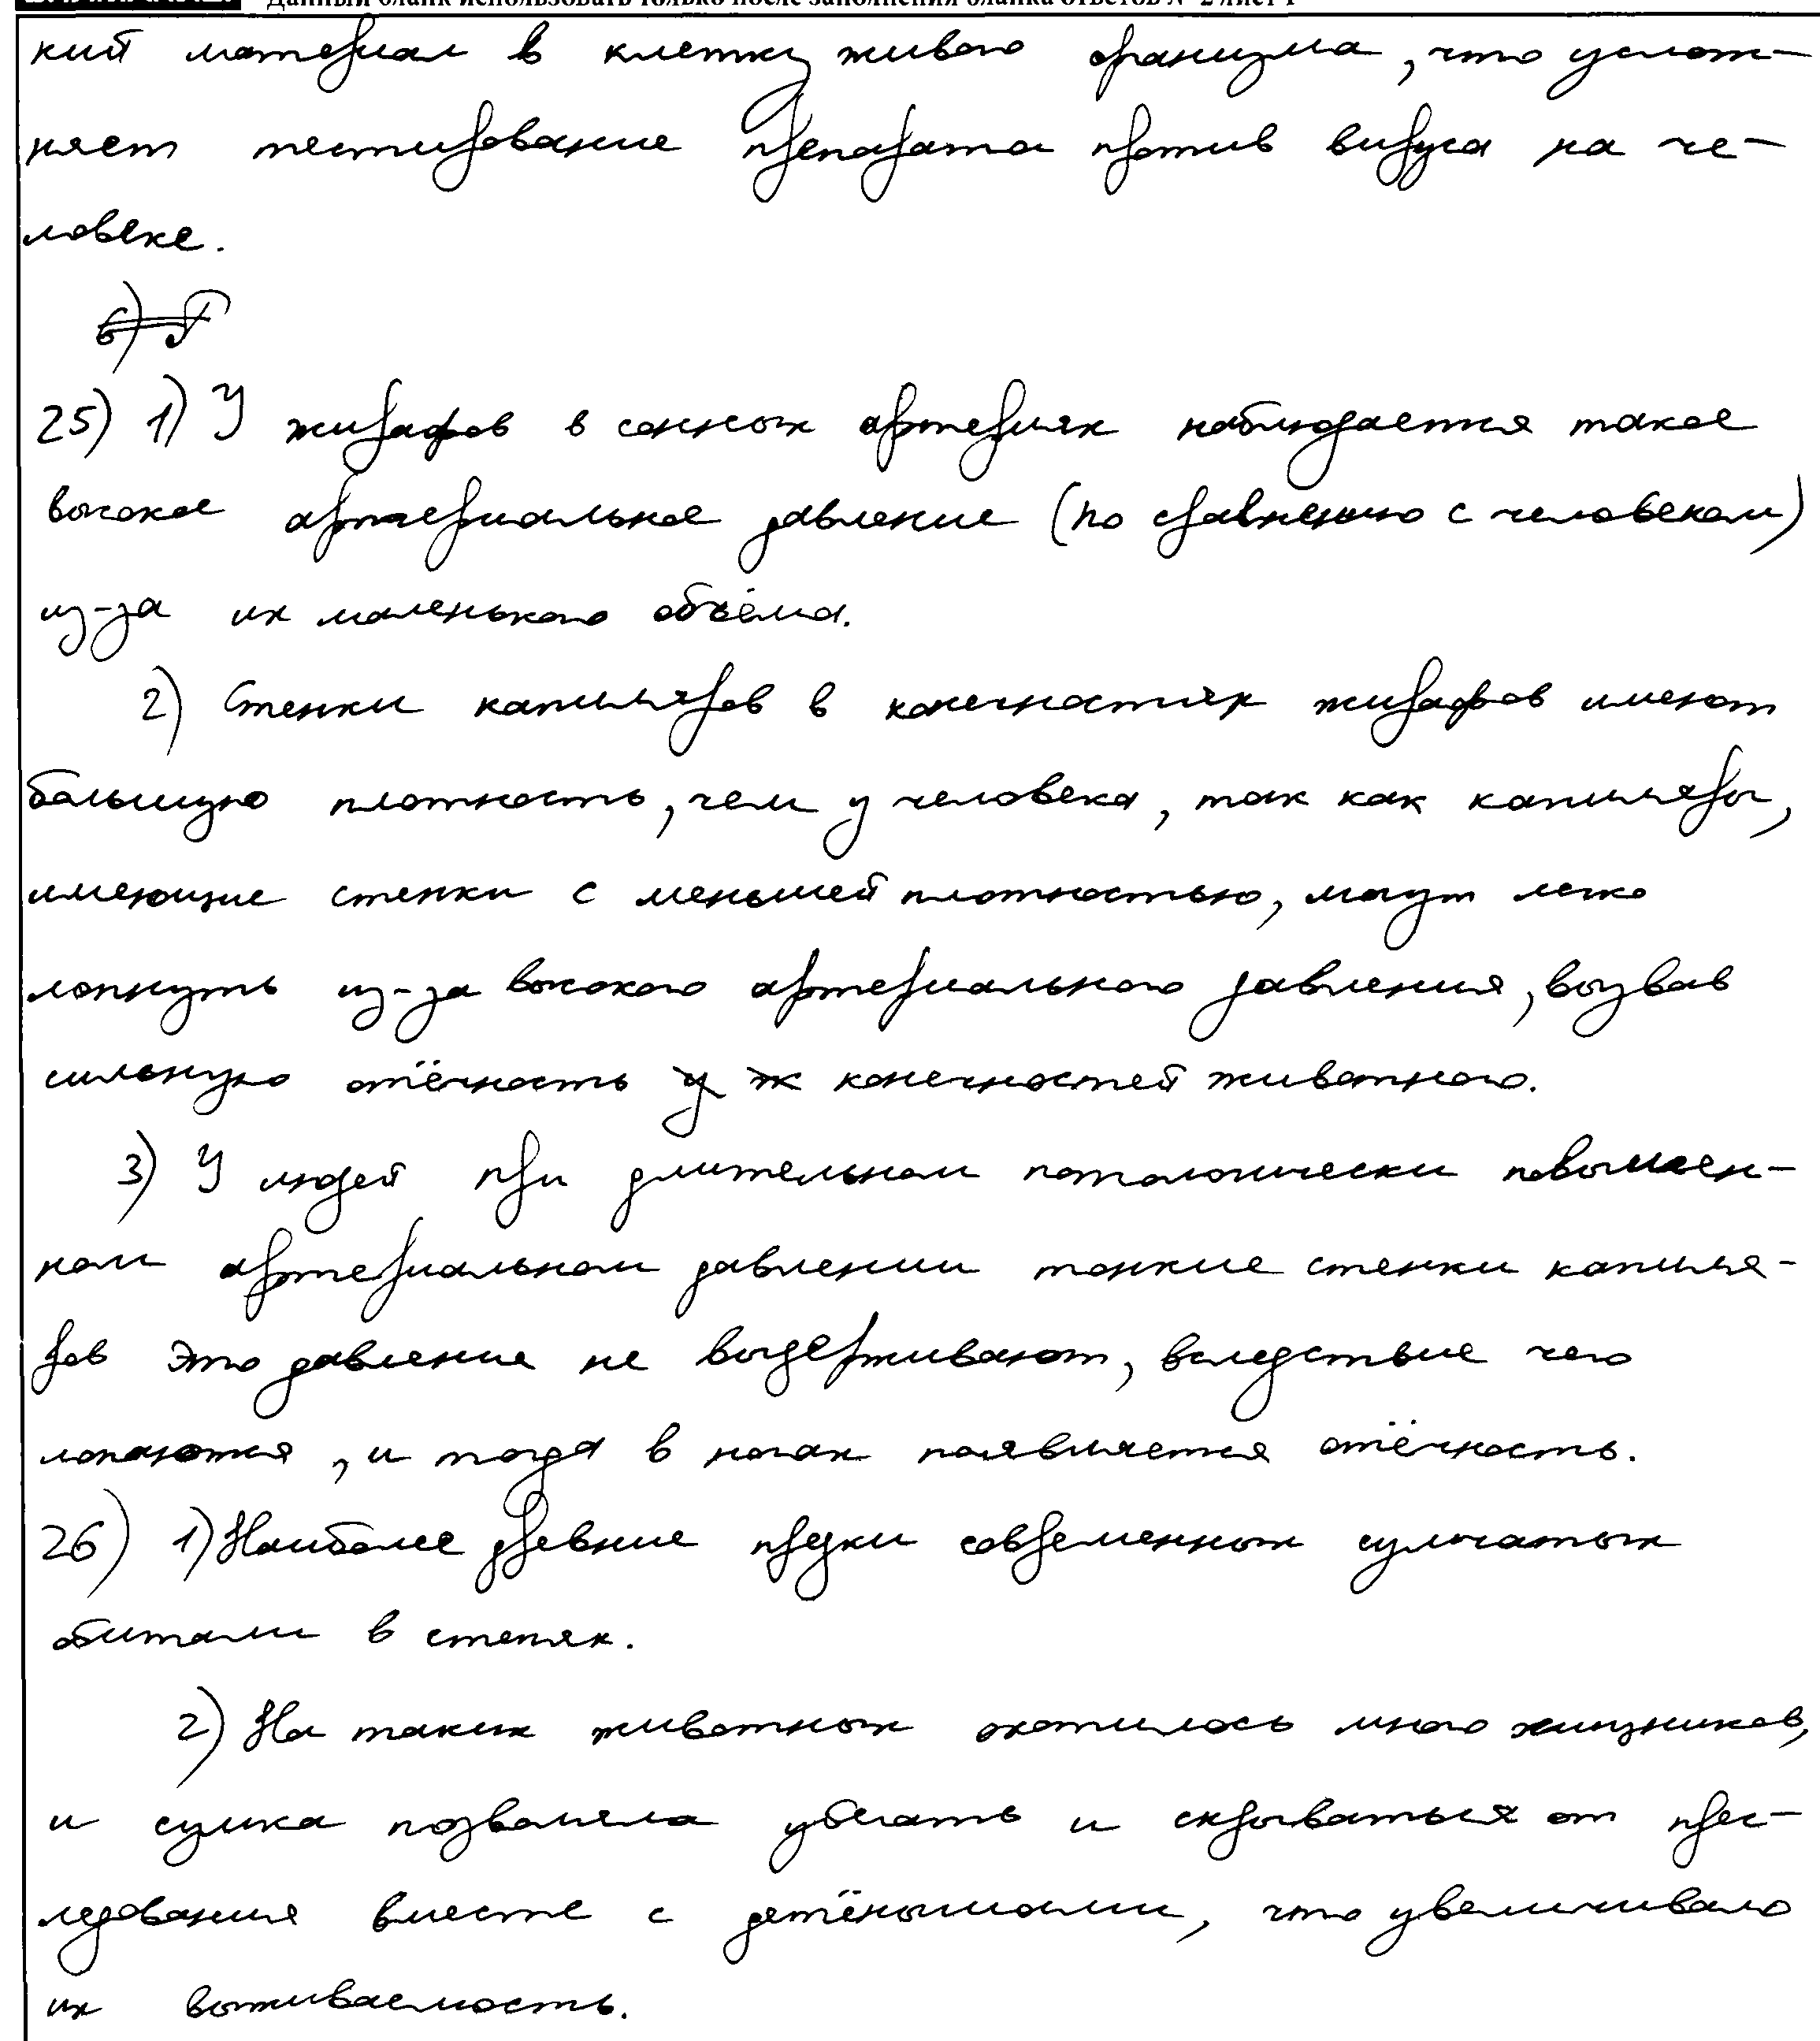 Данный бланк использовать только после заполнения бланка ответов № 2 лист 1
кий материал в клетку живого организма, что услож-
няет тестирование препарата против вируса на че-
ловеке.
6)
25) 1) У жирафов в сонных артериях наблюдается такое
высокое артериальное давление (по сравнению с человеком)
из-за их маленького объёма.
2) Стенки капилляров в конечностях жирафов имеют
большую плотность, чем у человека, так как капилляры,
имеющие стенки с меньшей плотностью, могут легко
лопнуть из-за высокого артериального давления, вызвав
сильную отёчность у ж конечностей животного.
3) У людей при длительном патологически повышен-
ном артериальном давлении тонкие стенки капилля-
ров это давление не выдерживают, вследствие чего
лопаются, и тогда в ногах появляется отёчность.
26) 1) Наиболее древние предки современных сумчатых
обитали в степях.
2) На таких животных охотилось много хищников,
и сумка позволяла убегать и скрываться от прес-
ледования вместе с детёнышами, что увеличивало
их выживаемость.